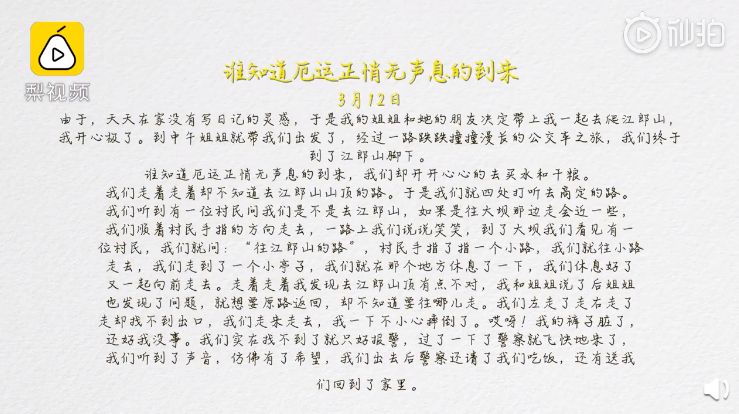 梨视频
秒拍
谁知道厄运正悄无声息的到来
3月12日
由于，天天在家没有写日记的灵感，于是我的姐姐和她的朋友决定带上我一起去爬江郎山，
我开心极了。到中午姐姐就带我们出发了，经过一路跌跌撞撞漫长的公交车之旅，我们终于
到了江郎山脚下。
谁知道厄运正悄无声息的到来，我们却开开心心的去买水和干粮。
我们走着走着却不知道去江郎山山顶的路。于是我们就四处打听去高定的路。
我们听到有一位村民问我们是不是去江郎山，如果是往大坝那边走会近一些，
我们顺着村民手指的方向走去，一路上我们说说笑笑，到了大坝我们看见有一
位村民，我们就问：“往江郎山的路”，村民手指了指一个小路，我们就往小路
走去，我们走到了一个小亭子，我们就在那个地方休息了一下，我们休息好了
又一起向前走去。走着走着我发现去江郎山顶有点不对，我和姐姐说了后姐姐
也发现了问题，就想要原路返回，却不知道要往哪儿走。我们左走了走右走了
走却找不到出口，我们走来走去，我一下不小心摔倒了。哎呀！我的裤子脏了，
还好我没事。我们实在找不到了就只好报警，过了一下了警察就飞快地来了，
我们听到了声音，仿佛有了希望，我们出去后警察还请了我们吃饭，还有送我
们回到了家里。